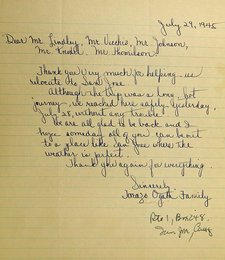 July 29, 1945
Dear Mr. Lindley, Mr. Vecchio, Mr. Johnson,
Mr. Knodel, Mr. Thomilson
Thank you very much for helping us
relocate to San Jose
Although the trip was a long, hot
journey, we reached here safely yesterday,
July 28, without any trouble.
We are all glad to be back and I
hope someday all of you can benefit
to a place like San Jose where the
weather is perfect.
Thank you again for everything.
Sincerely
Ogata Family
Rte 1, Box 248
San